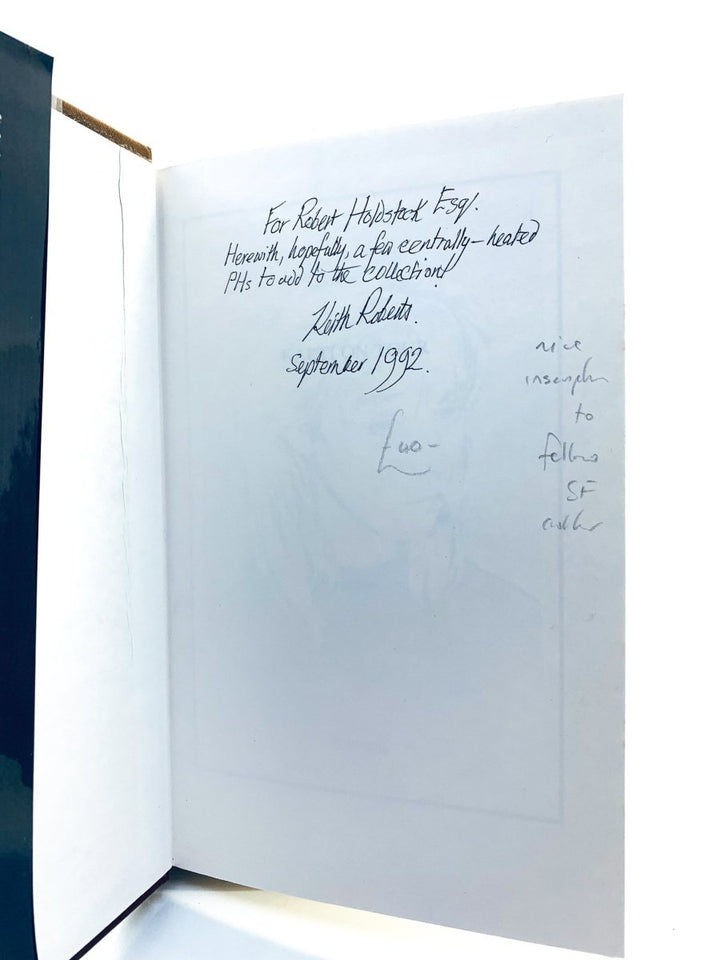 For Robert Holdstock Esq/.
Herewith, hopefully, a few centrally-heated
PHs to add to the collection!
Keith Roberts.
September 1992.
nice
inscription
to
fellow
SF
author